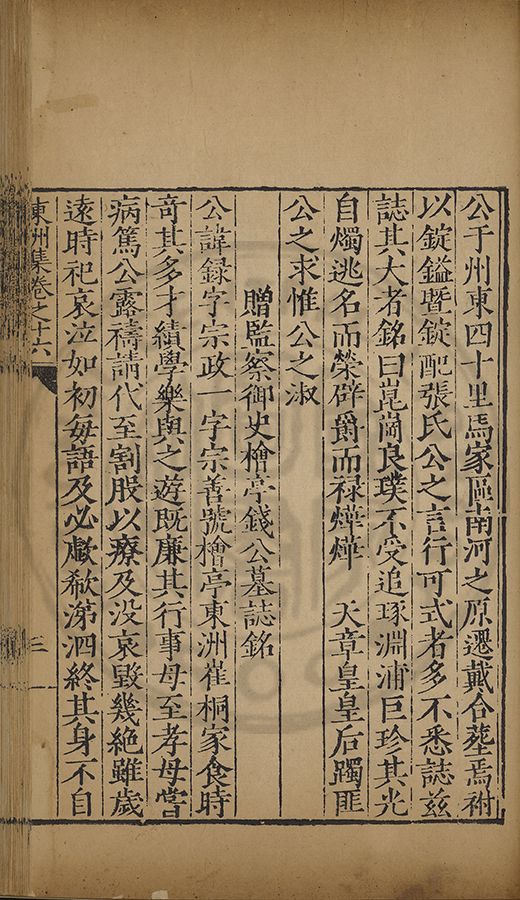 公于州東四十里馬家區南河之原遷戴合塟焉祔
以錠鎰暨錠配張氏公之言行可式者多不悉誌玆
誌其大者銘曰崑崗良璞不受追琢淵浦巨珍其光
自燭逃名而榮辟爵而禄燁燁　天章皇皇后躅匪
公之求惟公之淑
贈監察御史檜亭錢公墓誌銘
公諱録字宗政一字宗善號檜亭東洲崔桐家食時
竒其多才績學樂與之遊既廉其行事母至孝母嘗
病篤公露禱請代至割股以療及没哀毀幾絶雖歲
遠時祀哀泣如初每語及必歔欷涕泗終其身不自
東洲集卷之十六
三